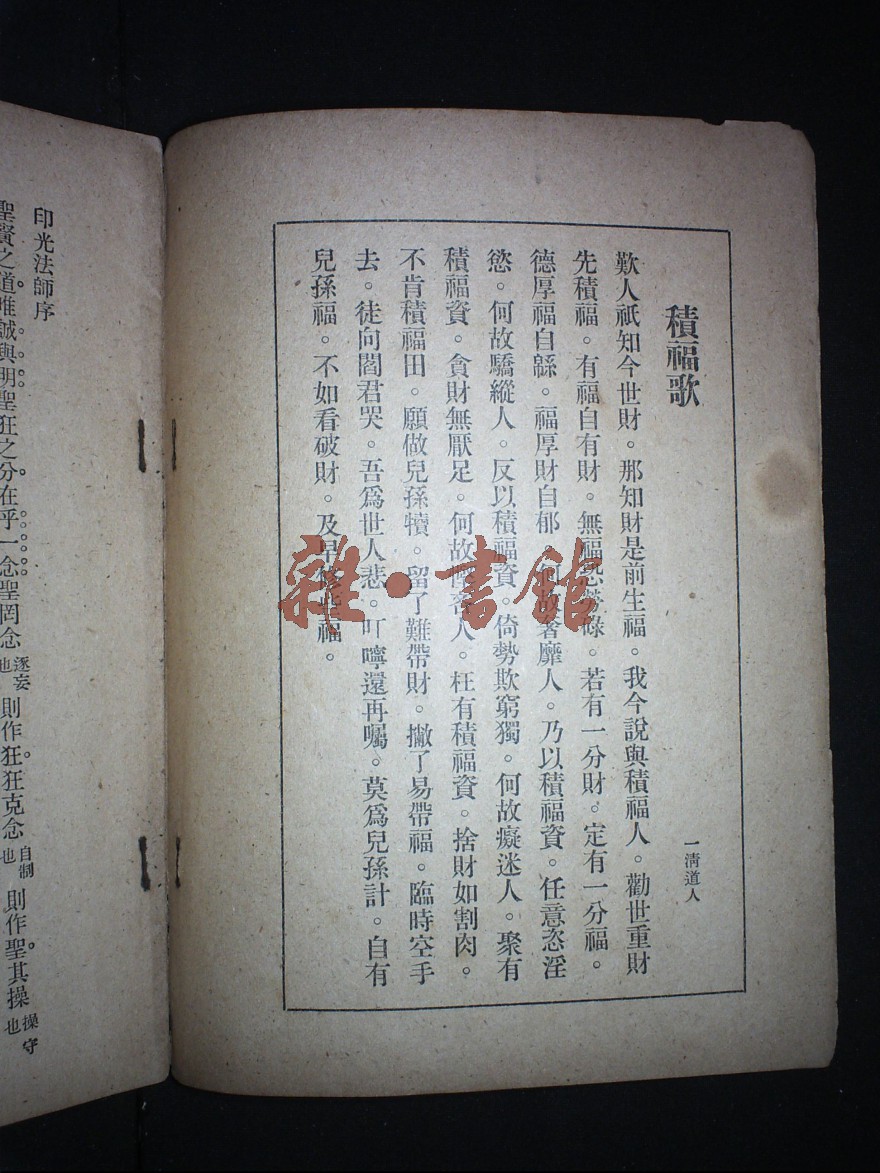 積福歌
一清道人
歎人祇知今世財。那知財是前生福。我今說與積福人。勸世重財
先積福。有福自有財。無福愁勞碌。若有一分財。定有一分福。
德厚福自緜。福厚財自郁。何故奢靡人。乃以積福資。任意恣淫
慾。何故驕縱人。反以積福資。倚勢欺窮獨。何故癡迷人。聚有
積福資。貪財無厭足。何故人。枉有積福資。捨財如割肉。
不肯積福田。願做兒孫犢。留了難帶財。撇了易帶福。臨時空手
去。徒向閻君哭。吾為世人悲。叮嚀還再囑。莫為兒孫計。自有
兒孫福。不如看破財。及早福。
雜·書館
印光法師序
聖賢之道唯誠與明聖狂之分在乎一念聖罔念逐妄也則作狂狂克念自制也則作聖其操操守也